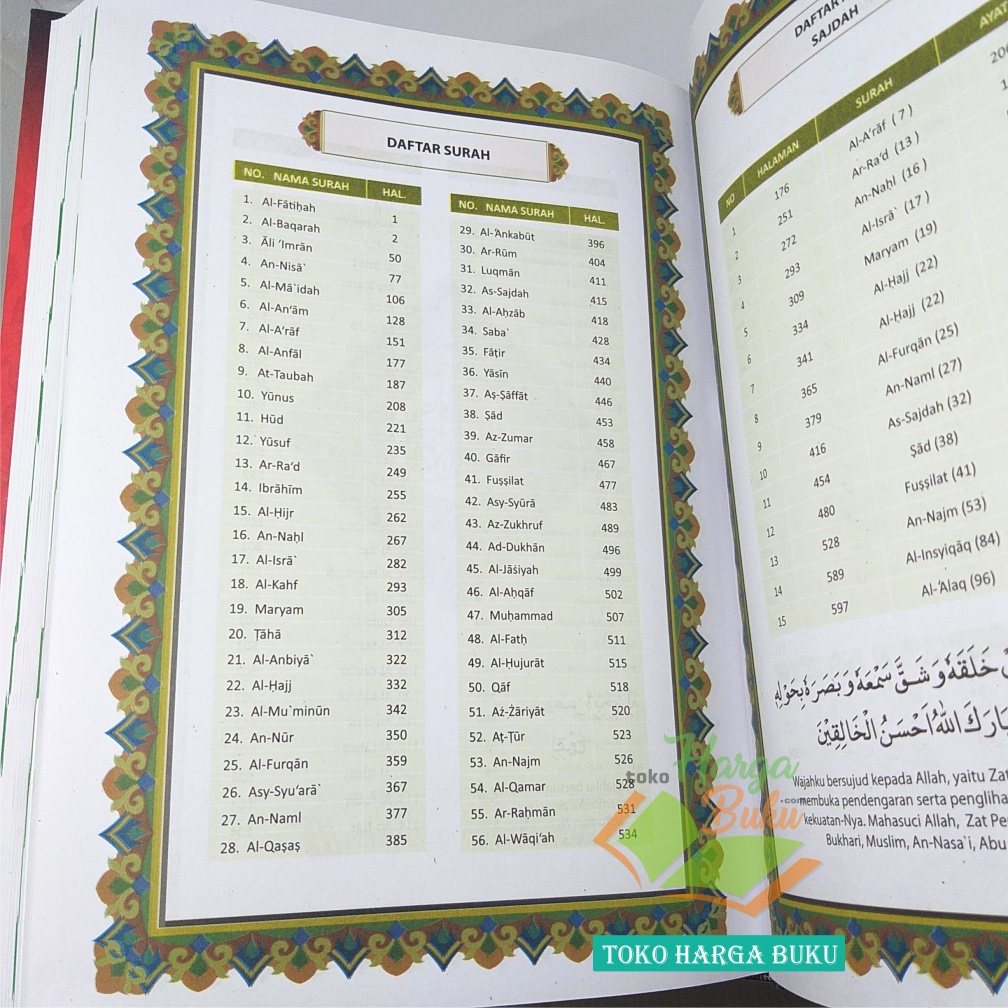 DAFTAR SURAH
NO. NAMA SURAH HAL.
1. Al-Fātiḥah 1
2. Al-Baqarah 2
3. Āli ‘Imrān 50
4. An-Nisā` 77
5. Al-Mā`idah 106
6. Al-An‘ām 128
7. Al-A‘rāf 151
8. Al-Anfāl 177
9. At-Taubah 187
10. Yūnus 208
11. Hūd 221
12. Yūsuf 235
13. Ar-Ra‘d 249
14. Ibrāhīm 255
15. Al-Ḥijr 262
16. An-Naḥl 267
17. Al-Isrā` 282
18. Al-Kahf 293
19. Maryam 305
20. Ṭāhā 312
21. Al-Anbiyā` 322
22. Al-Ḥajj 332
23. Al-Mu`minūn 342
24. An-Nūr 350
25. Al-Furqān 359
26. Asy-Syu‘arā` 367
27. An-Naml 377
28. Al-Qaṣaṣ 385
NO. NAMA SURAH HAL.
29. Al-‘Ankabūt 396
30. Ar-Rūm 404
31. Luqmān 411
32. As-Sajdah 415
33. Al-Aḥzāb 418
34. Saba` 428
35. Fāṭir 434
36. Yāsīn 440
37. Aṣ-Ṣāffāt 446
38. Ṣād 453
39. Az-Zumar 458
40. Gāfir 467
41. Fuṣṣilat 477
42. Asy-Syūrā 483
43. Az-Zukhruf 489
44. Ad-Dukhān 496
45. Al-Jāṡiyah 499
46. Al-Aḥqāf 502
47. Muḥammad 507
48. Al-Fatḥ 511
49. Al-Ḥujurāt 515
50. Qāf 518
51. Aż-Żāriyāt 520
52. Aṭ-Ṭūr 523
53. An-Najm 526
54. Al-Qamar 528
55. Ar-Raḥmān 531
56. Al-Wāqi‘ah 534
DAFTAR
SAJDAH
NO HALAMAN SURAH AYAT
1 176 Al-A‘rāf ( 7 )
2 251 Ar-Ra‘d (13 )
3 272 An-Naḥl (16 )
4 293 Al-Isrā` (17 )
5 309 Maryam (19)
6 334 Al-Ḥajj (22)
7 341 Al-Ḥajj (22)
8 365 Al-Furqān (25)
9 379 An-Naml (27)
10 416 As-Sajdah (32)
11 454 Ṣād (38)
12 480 Fuṣṣilat (41)
13 528 An-Najm (53)
14 589 Al-Insyiqāq (84)
15 597 Al-‘Alaq (96)
خَلَقَهُ وَشَقَّ سَمْعَهُ وَبَصَرَهُ بِحَوْلِهِ
اللهُ اَحْسَنُ الْخَالِقِيْنَ
Wajahku bersujud kepada Allah, yaitu Zat
membuka pendengaran serta pengliha
kekuatan-Nya. Mahasuci Allah, Zat Pe
Bukhari, Muslim, An-Nasa`i, Abu
toko Harga
Buku .com
TOKO HARGA BUKU